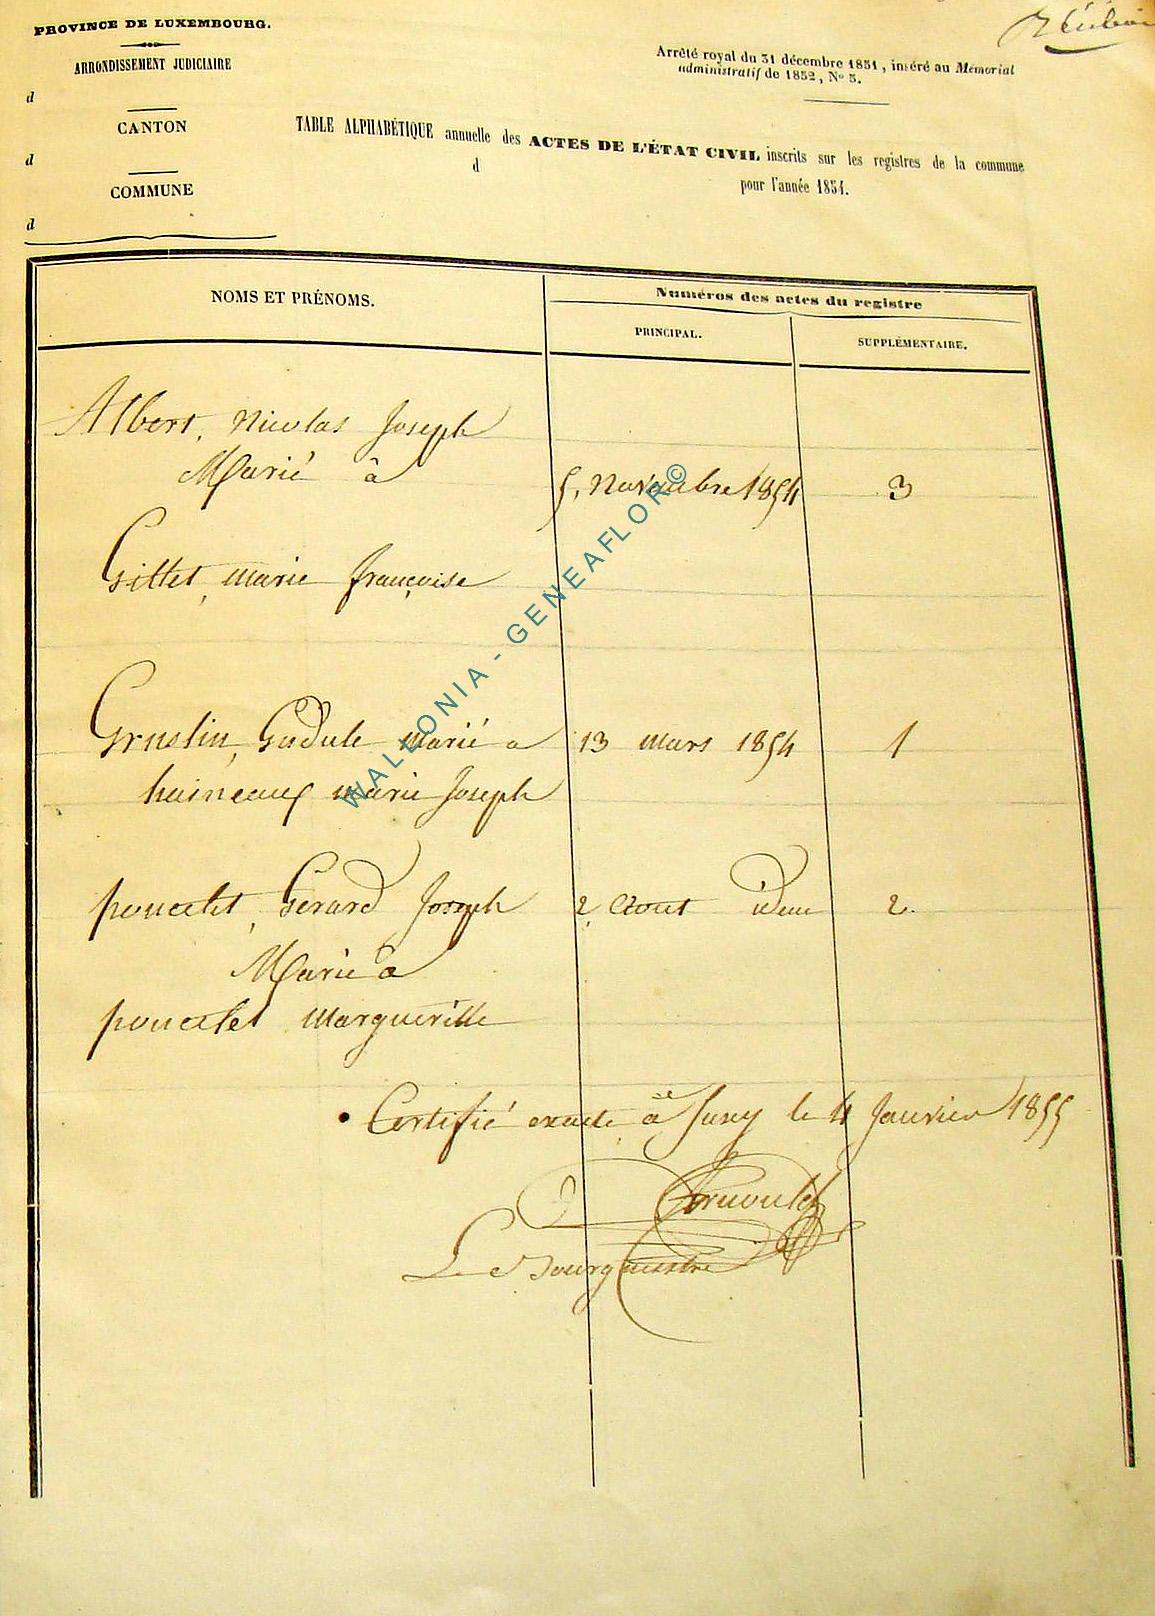 PROVINCE DE LUXEMBOURG.
ARRONDISSEMENT JUDICIAIRE
d
CANTON
d
COMMUNE
d
Arrêté royal du 31 décembre 1851, inséré au Mémorial
administratif de 1852, No 5.
TABLE ALPHABÉTIQUE annuelle des ACTES DE L'ÉTAT CIVIL inscrits sur les registres de la commune
d pour l'année 1854.
NOMS ET PRÉNOMS.
Numéros des actes du registre
PRINCIPAL.
SUPPLÉMENTAIRE.
Albert, Nicolas Joseph
Marié à 5, Novembre 1854 3
Gillet, marie françoise
Grustin, Gudule marié a 13 mars 1854 1
haineaux marie Joseph
poncelet, Gérard Joseph 2, Aout idem 2.
Marié a
poncelet Margueritte
Certifié exacte à Suxy le 4 Janvier 1855
Le Bourgmestre
WALLONIA - GENEAFLOR©